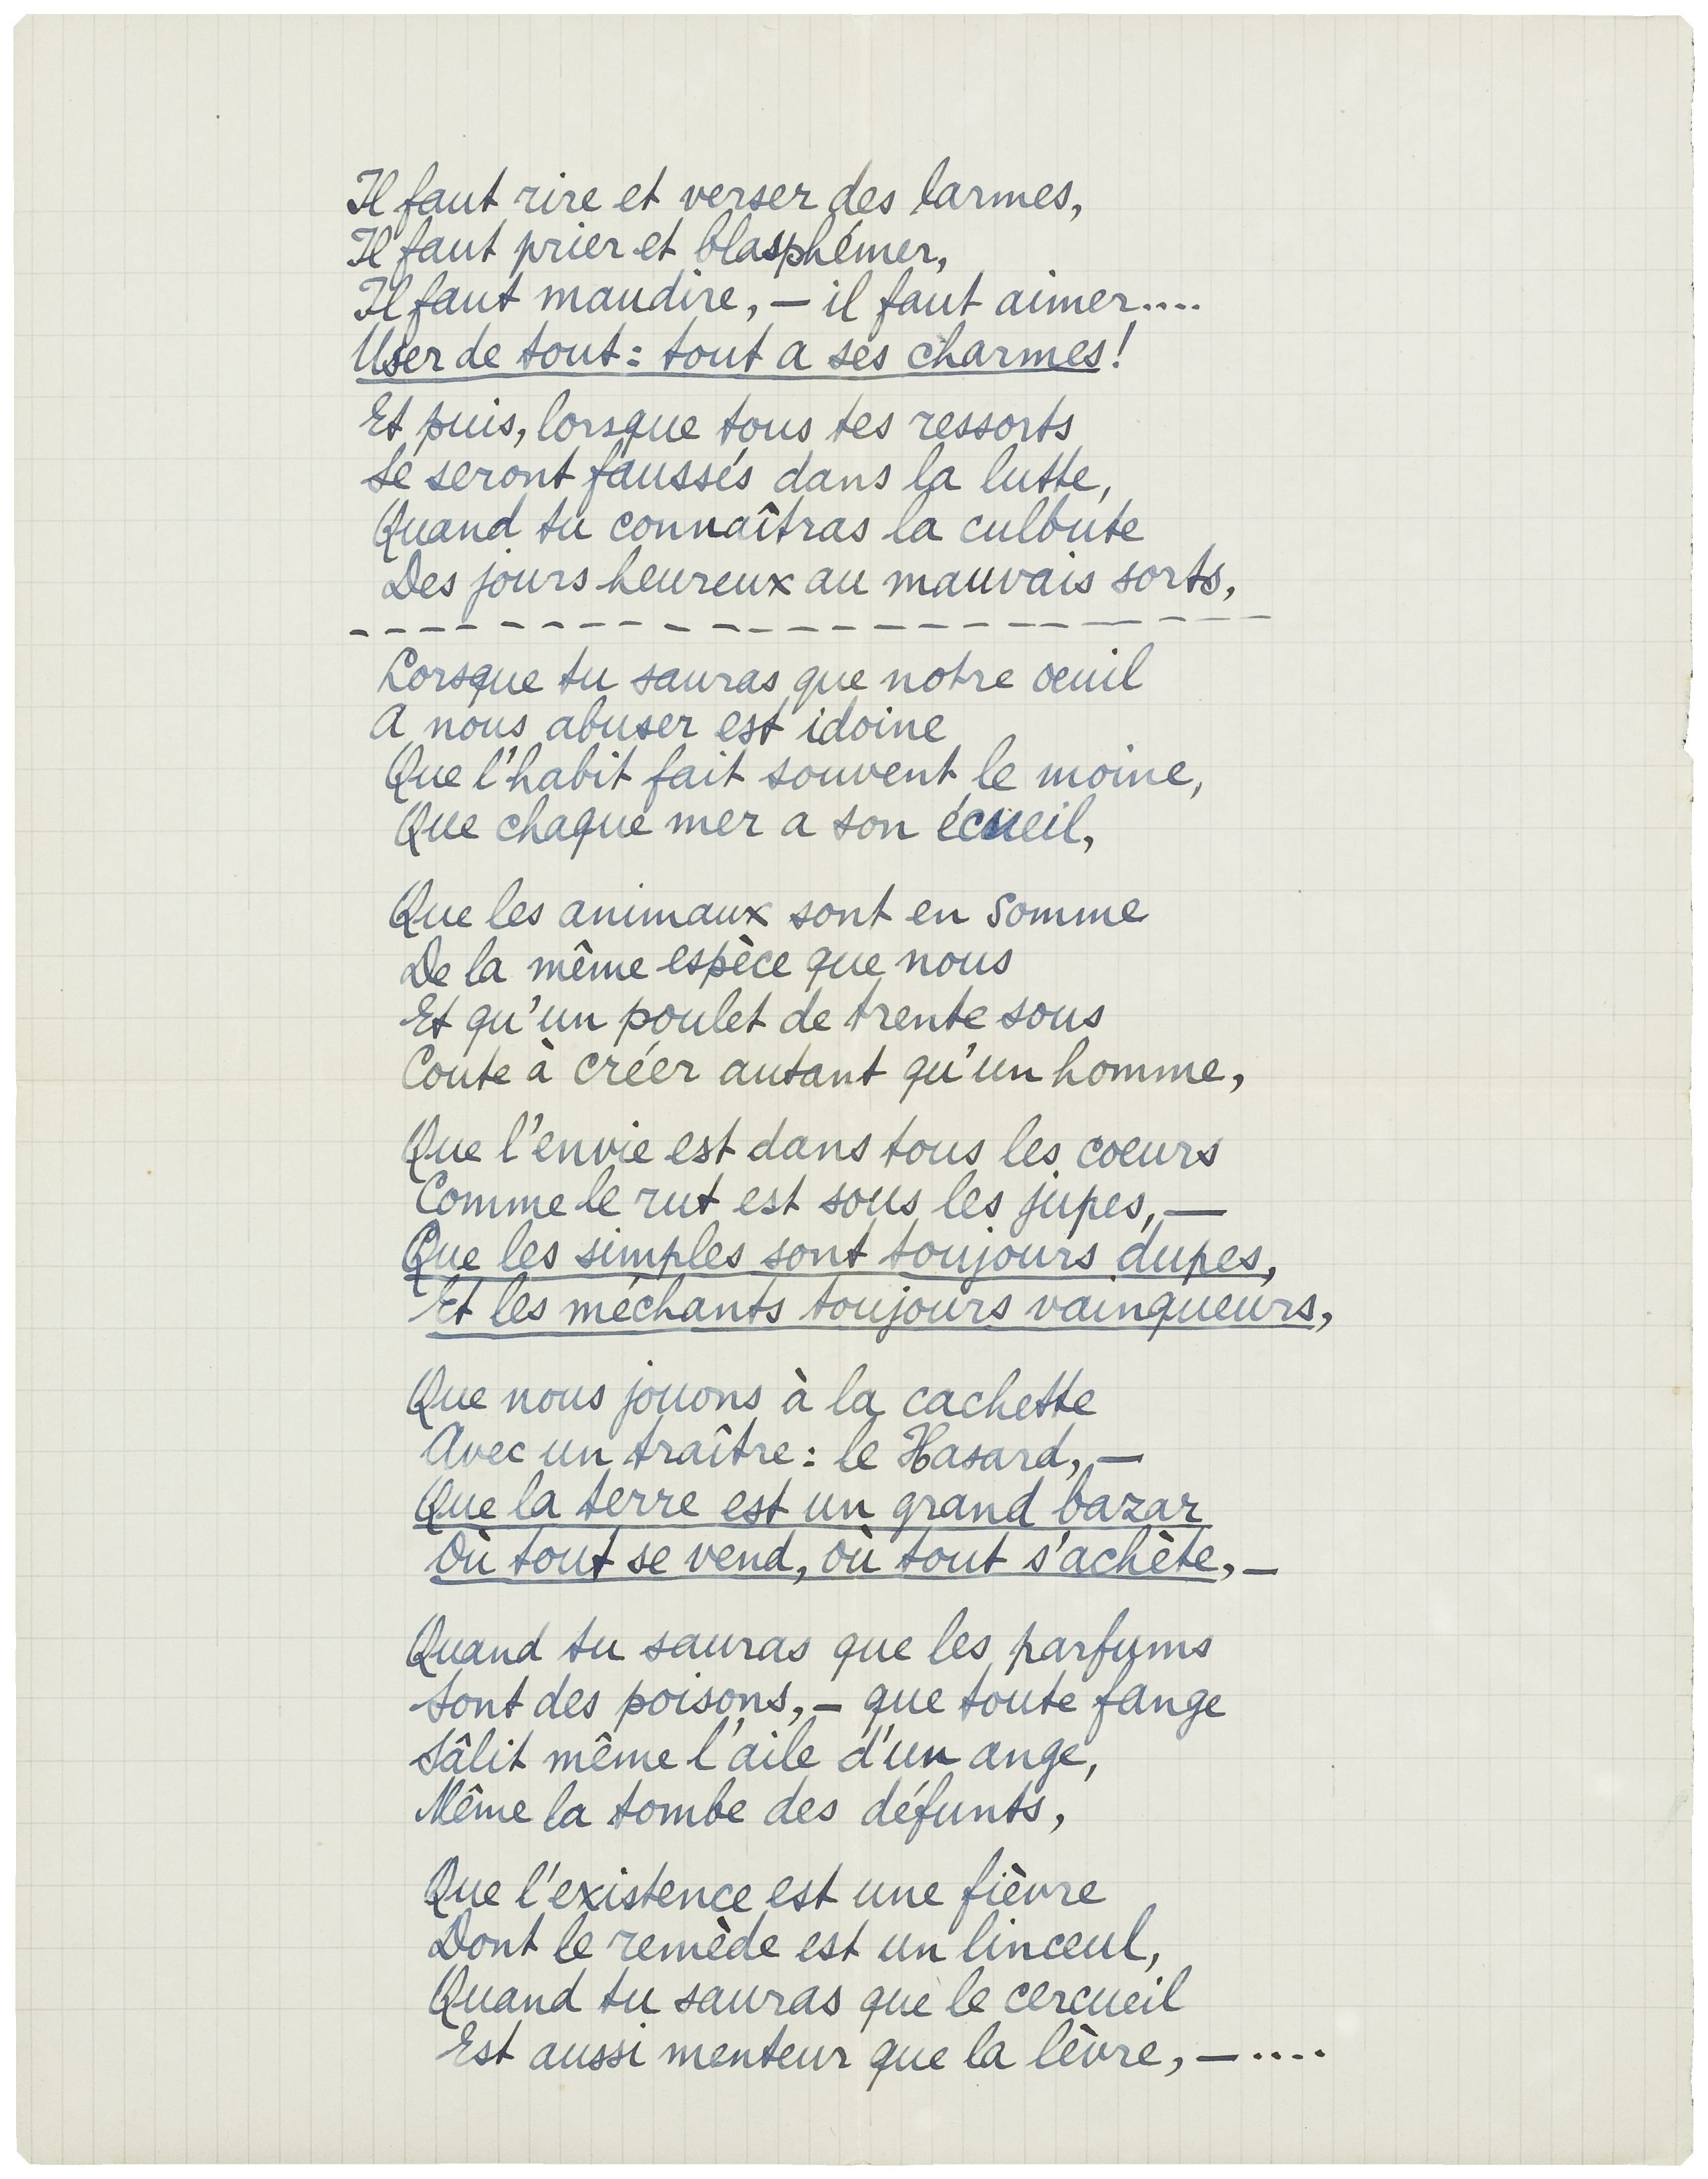 Il faut rire et verser des larmes,
Il faut prier et blasphémer,
Il faut maudire, — il faut aimer....
User de tout : tout a ses charmes !
Et puis, lorsque tous tes ressorts
Se seront faussés dans la lutte,
Quand tu connaîtras la culbute
Des jours heureux au mauvais sorts,
— — — — — — — — — — — — — — — — — — — — — — —
Lorsque tu sauras que notre oeuil
A nous abuser est idoine
Que l'habit fait souvent le moine,
Que chaque mer a son écueil,
Que les animaux sont en somme
De la même espèce que nous
Et qu'un poulet de trente sous
Coute à créer autant qu'un homme,
Que l'envie est dans tous les coeurs
Comme le rut est sous les jupes, —
Que les simples sont toujours dupes,
Et les méchants toujours vainqueurs,
Que nous jouons à la cachette
Avec un traître : le Hasard, —
Que la terre est un grand bazar
Où tout se vend, où tout s'achète, —
Quand tu sauras que les parfums
Sont des poisons, — que toute fange
Sâlit même l'aile d'un ange,
Même la tombe des défunts,
Que l'existence est une fièvre
Dont le remède est un linceul,
Quand tu sauras que le cercueil
Est aussi menteur que la lèvre, — ....